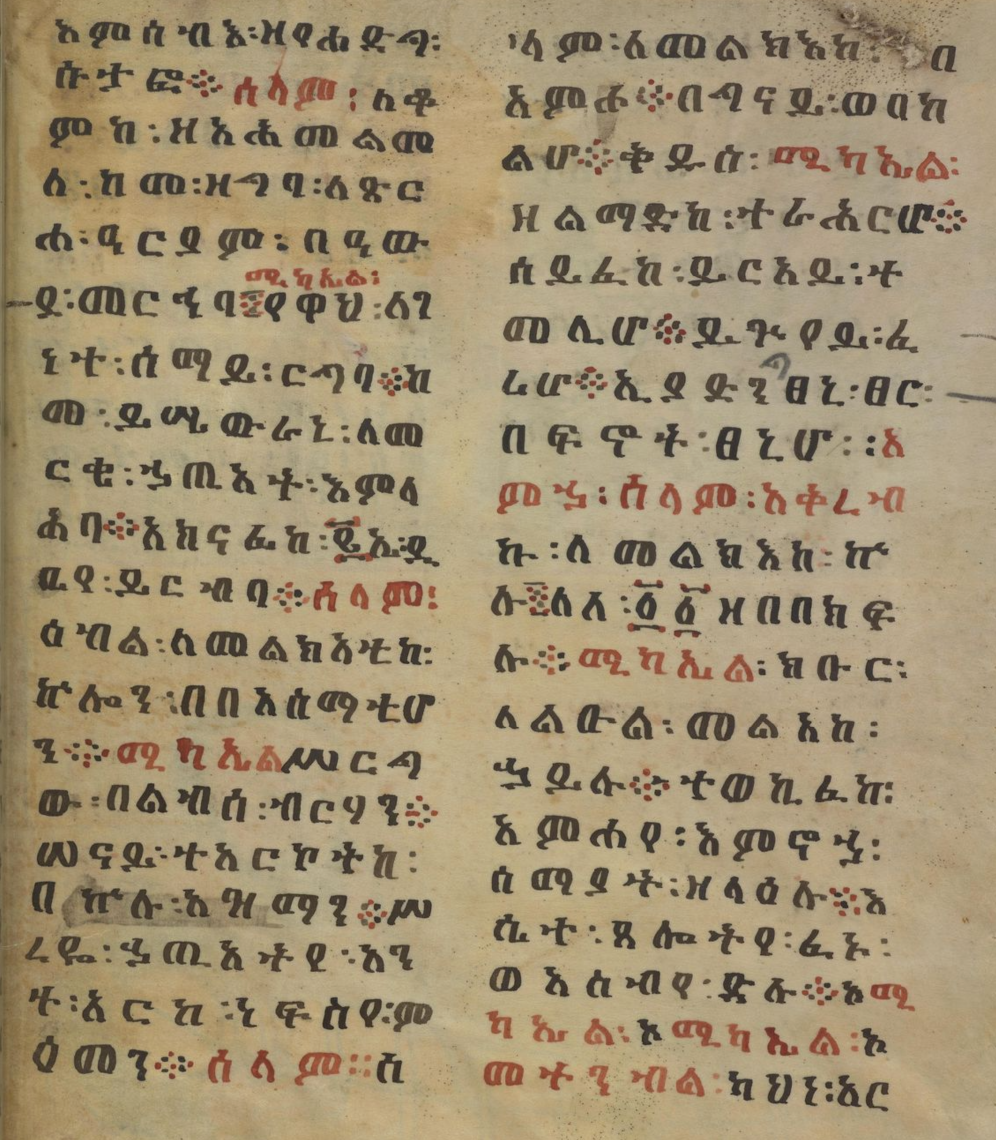 እምሰብእ፡ዘየሐድጣ፡
ሱታፎ፨ሰላም፡ለቆ
ምከ፡ዘአሐመልመ
ለ፡ከመ፡ዘግባ፡ለጽር
ሐ፡ዓርያም፡በዓው
ሚካኤል፡
ደ፡መርኄባ፨የዋህ፡ለገ
ነት፡ሰማይ፡ርግባ፨ከ
መ፡ይሚውራኒ፡ለመ
ርቄ፡ኃጢአት፡እምላ
ሕባ፨አክናፊከ፡፪እለ፡
የ፡ይርብባ፨ሰላም፡
ዕብል፡ለመልክአትከ፡
ኵሎን፡በበአስማቲሆ
ን፨ሚካኤልሠርጣ
ው፡በልብሰ፡ብርሃን፨
ሠናይ፡ተአርኮትከ፡
በኵሉ፡አዝማን፨ሠ
ረዬ፡ኃጢአትየ፡አን
ተ፡አርከ፡ነፍስየ፡ም
ዕመን፨ሰላም፡፡ሰ
ላም፡ለመልክእከ፡በ
አምሐ፨በግናይ፡ወበከ
ልሆ፨ቅዱስ፡ሚካኤል፡
ዘልማድከ፡ተራሕርሆ፨
ሰይፈከ፡ይርአይ፡ት
መሊሆ፨ይጕየይ፡ፈ
ሬሆ፨ኢያድን፡ፀኒ፡ፀር፡
በፍኖት፡ፀኒሆ፡፡አ
ምኃ፡ሰላም፡አቀረብ
ኩ፡ለመልክእከ፡ኵ
ሉ፨ለለ፡፩፩ዘበበክፍ
ሉ፨ሚካኤል፡ክቡር፡
ለልዑል፡መልአከ፡
ኃይሉ፨ተወኪፈከ፡
አምሐየ፡እምኖኃ፡
ሰማያት፡ዘላዕሉ፨እ
ሴተ፡ጸሎትየ፡ፈኑ፡
ወአስብየ፡ድሉ፨ኦሚ
ካኤል፡ኦሚካኤል፡ኦ
መተንብል፡ካህነ፡አር